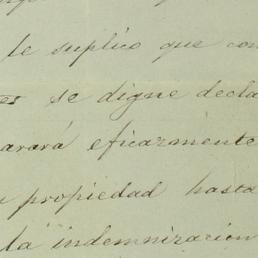 le suplico que con
es se digne decla
arará eficazmente
propiedad hasta
la indemnizacion